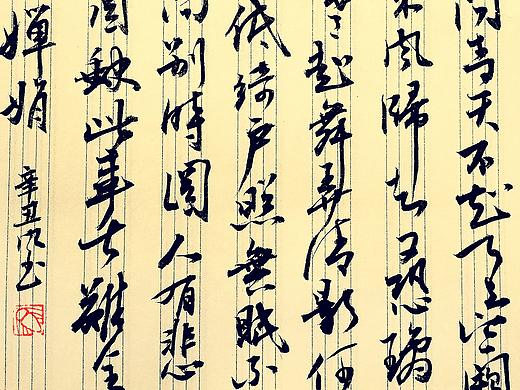 問青天不知天上宮闕
風歸去又恐瓊
起舞弄清影何
低綺戶照無眠不
向別時圓人有悲
圓缺此事古難全
嬋娟
辛丑書